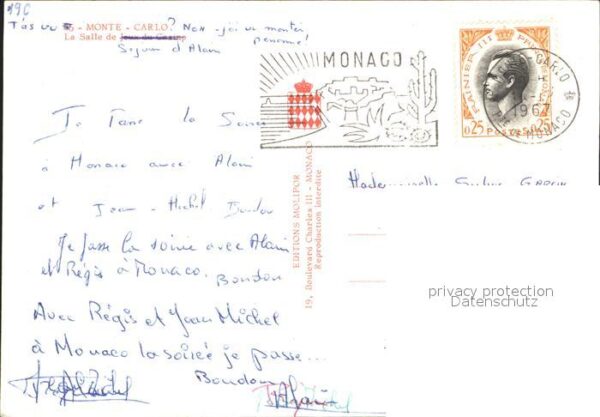 - MONTE - CARLO ? Non - j'ai vu monter
T'as vu
La Salle de Jeux du Casino personne!
Séjour d'Alain
MONACO
RAINIER III
MONTE-CARLO
1967
MONACO
0,25 POSTES 0,25
Je Passe la Soirée
à Monaco avec Alain
et Jean-Michel Boudou
Je passe la soirée avec Alain
et Régis à Monaco.
Boudou
Avec Régis et Jean Michel
à Monaco la soirée je passe...
Boudou
Alain
EDITIONS MOLIPOR
19, Boulevard Charles III - MONACO
Reproduction interdite
Mademoiselle
privacy protection
Datenschutz